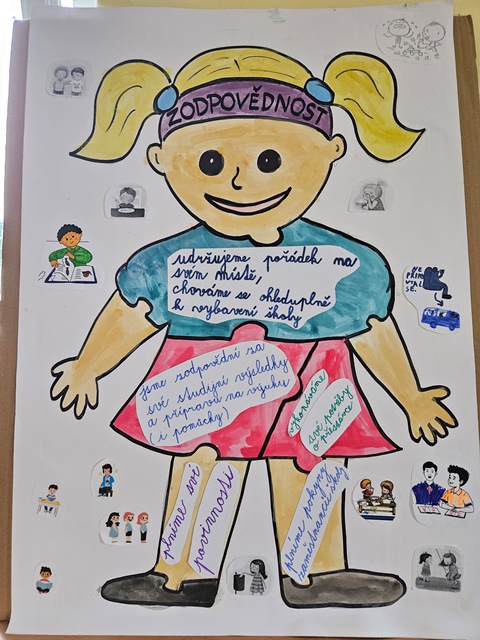 ZODPOVĚDNOST
udržujeme pořádek na
svém místě,
chováme se ohleduplně
k vybavení školy
jsme zodpovědní za
své studijní výsledky
a přípravu na výuku
(i pomůcky)
vykonáváme
své potřeby
o přestávce
plníme své
povinnosti
plníme pokyny
zaměstnanců školy